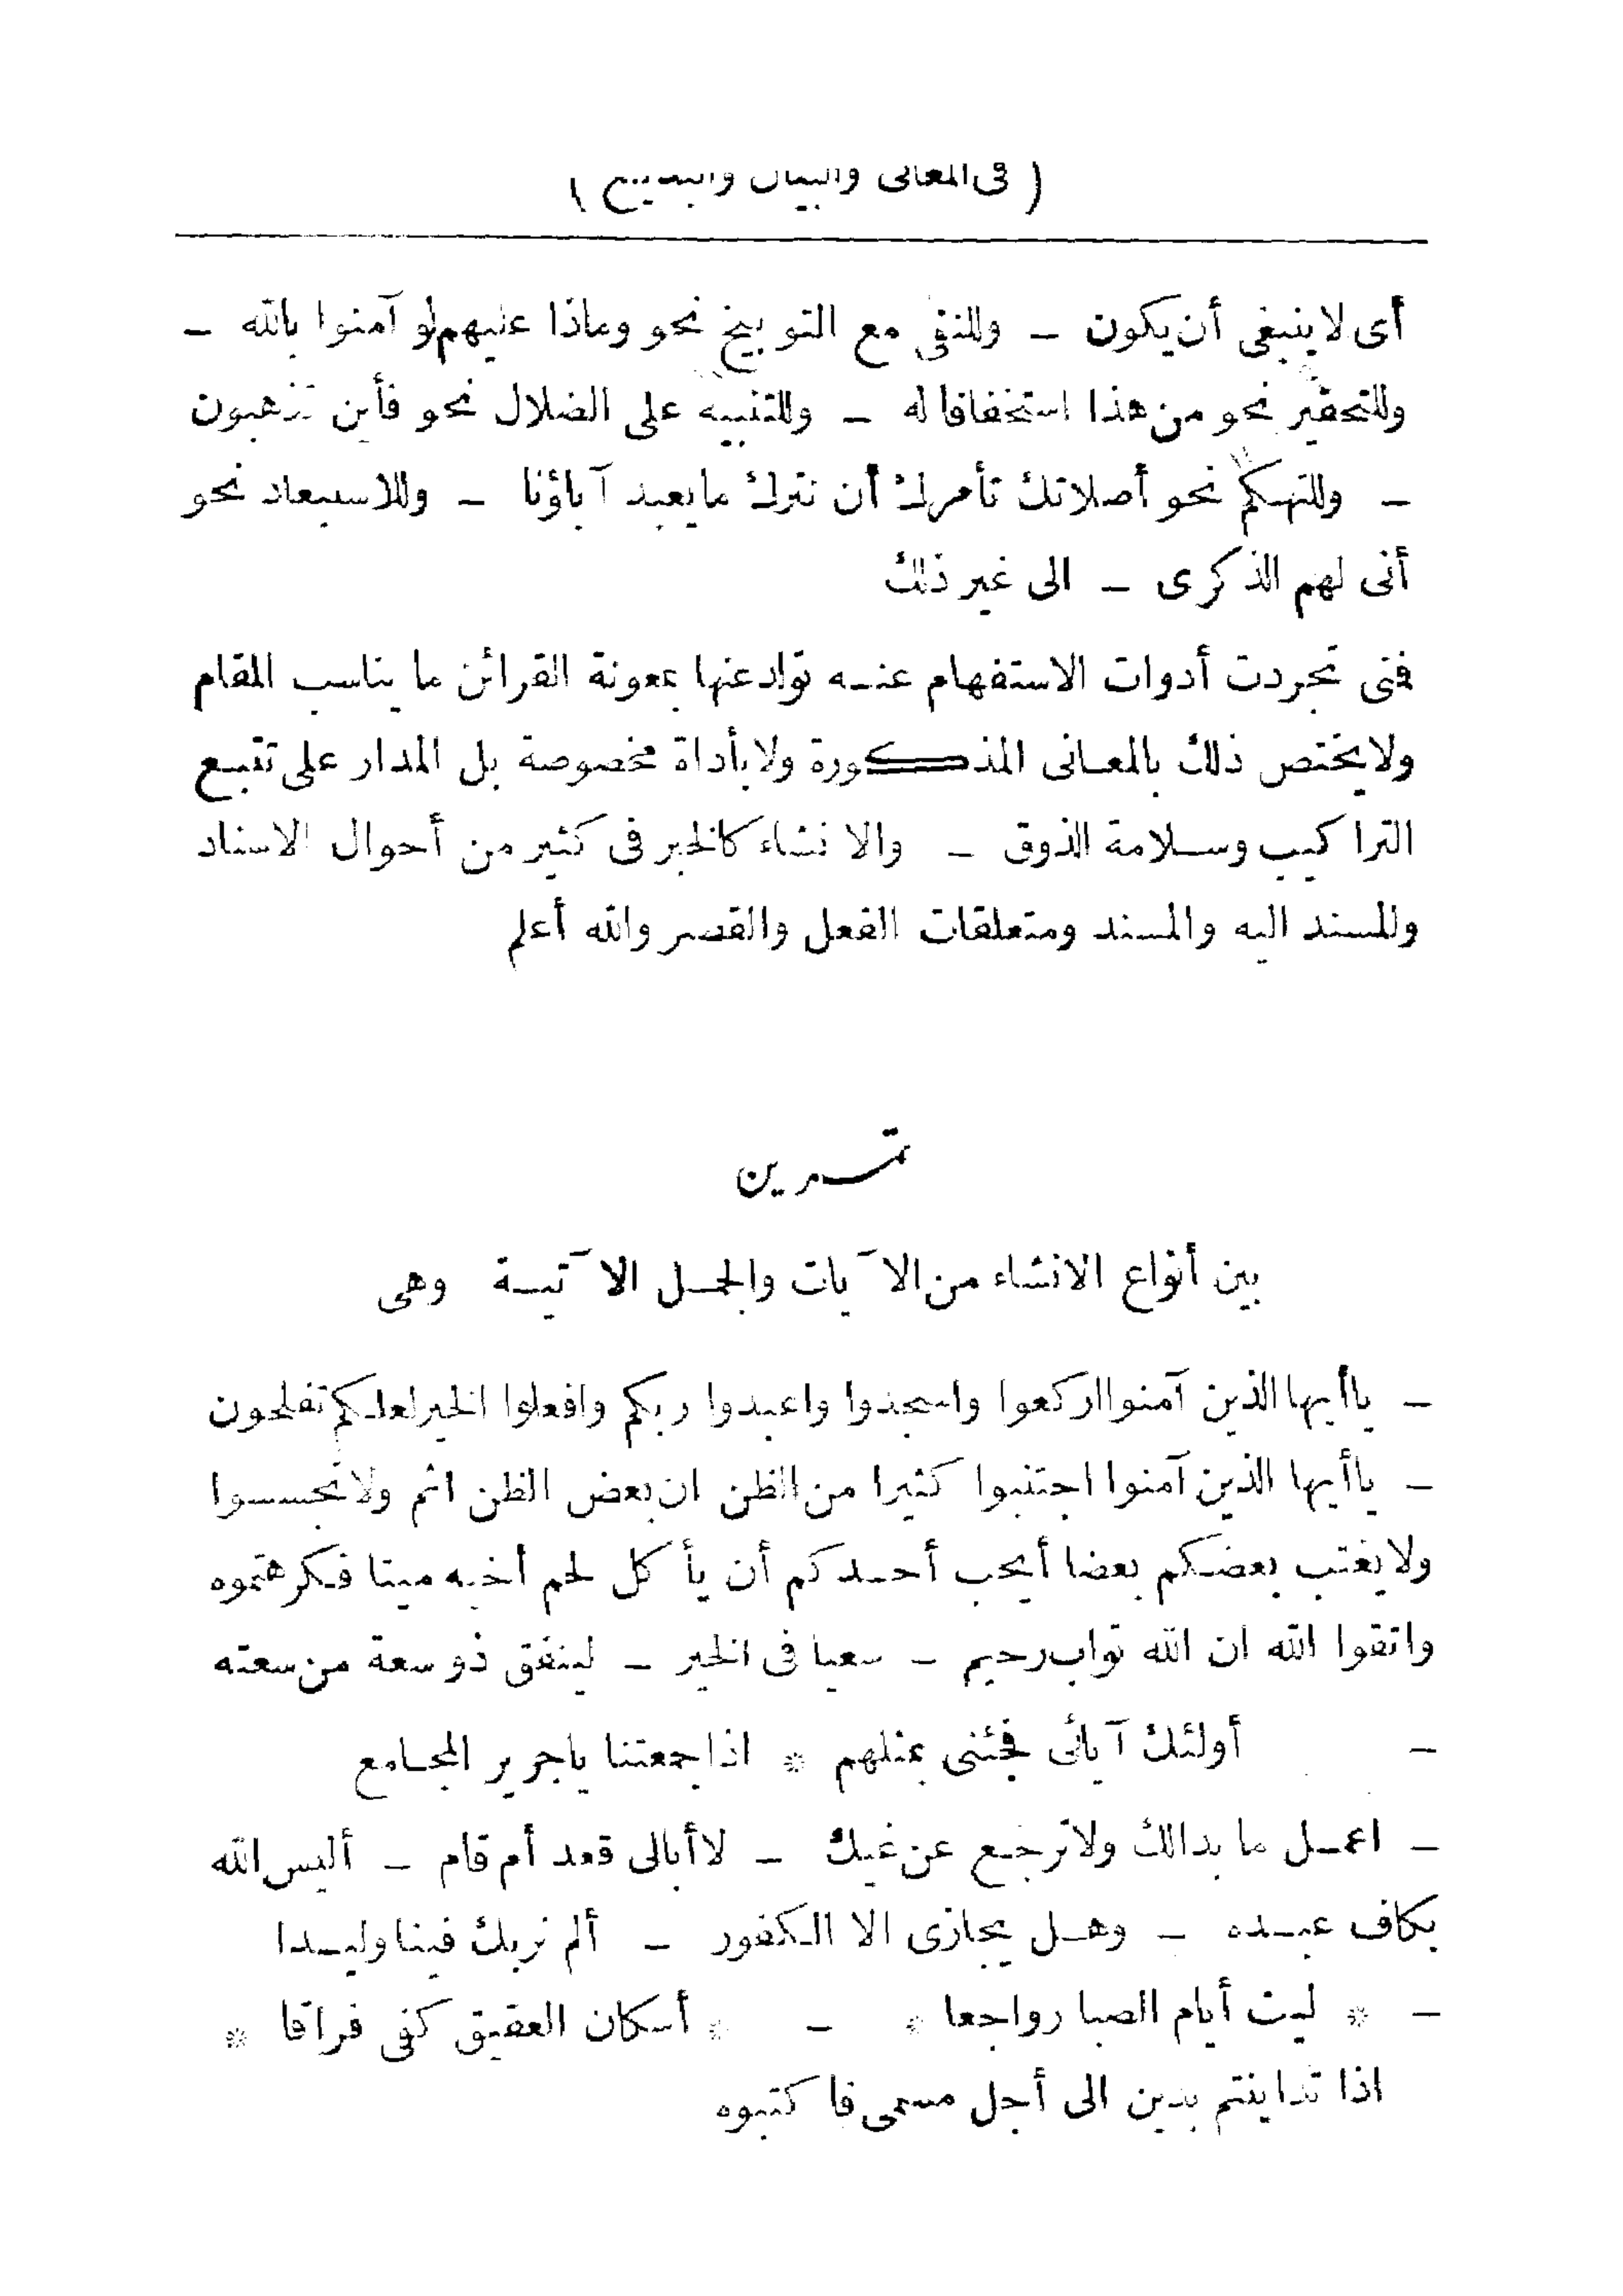 ( في المعانى والبيان والبديع )
أى لا ينبغى أن يكون – وللنفى مع التوبيخ نحو وماذا عليهم لو آمنوا بالله –
وللتحقير نحو من هذا استخفافا له – وللتنبيه على الضلال نحو فأين تذهبون
– وللتهكم نحو أصلاتك تأمرك أن نترك ما يعبد آباؤنا – وللاستبعاد نحو
أنى لهم الذكرى – الى غير ذلك
فتى تجردت أدوات الاستفهام عنه تولد عنها بمعونة القرائن ما يناسب المقام
ولا يختص ذلك بالمعانى المذكورة ولا بأداة مخصوصة بل المدار على تتبع
التراكيب وسلامة الذوق – والانشاء كالخبر فى كثير من أحوال الاسناد
وللمسند اليه والمسند ومتعلقات الفعل والقصر والله أعلم
تمرين
بين أنواع الانشاء من الآيات والجمل الآتية وهى
– ياأيها الذين آمنوا اركعوا واسجدوا واعبدوا ربكم وافعلوا الخير لعلكم تفلحون
– ياأيها الذين آمنوا اجتنبوا كثيرا من الظن ان بعض الظن اثم ولا تجسسوا
ولا يغتب بعضكم بعضا أيحب أحدكم أن يأكل لحم أخيه ميتا فكرهتموه
واتقوا الله ان الله تواب رحيم – سعيا فى الخير – لينفق ذو سعة من سعته
– أولئك آبائى فجئنى بمثلهم * اذا جمعتنا ياجرير المجامع
– اعمل ما بدالك ولا ترجع عن غيك – لا أبالى قعد أم قام – أليس الله
بكاف عبده – وهل يجازى الا الكفور – ألم نربك فينا وليدا
– * ليت أيام الصبا رواجعا * – * أسكان العقيق كفى فراقا *
اذا تداينتم بدين الى أجل مسمى فاكتبوه